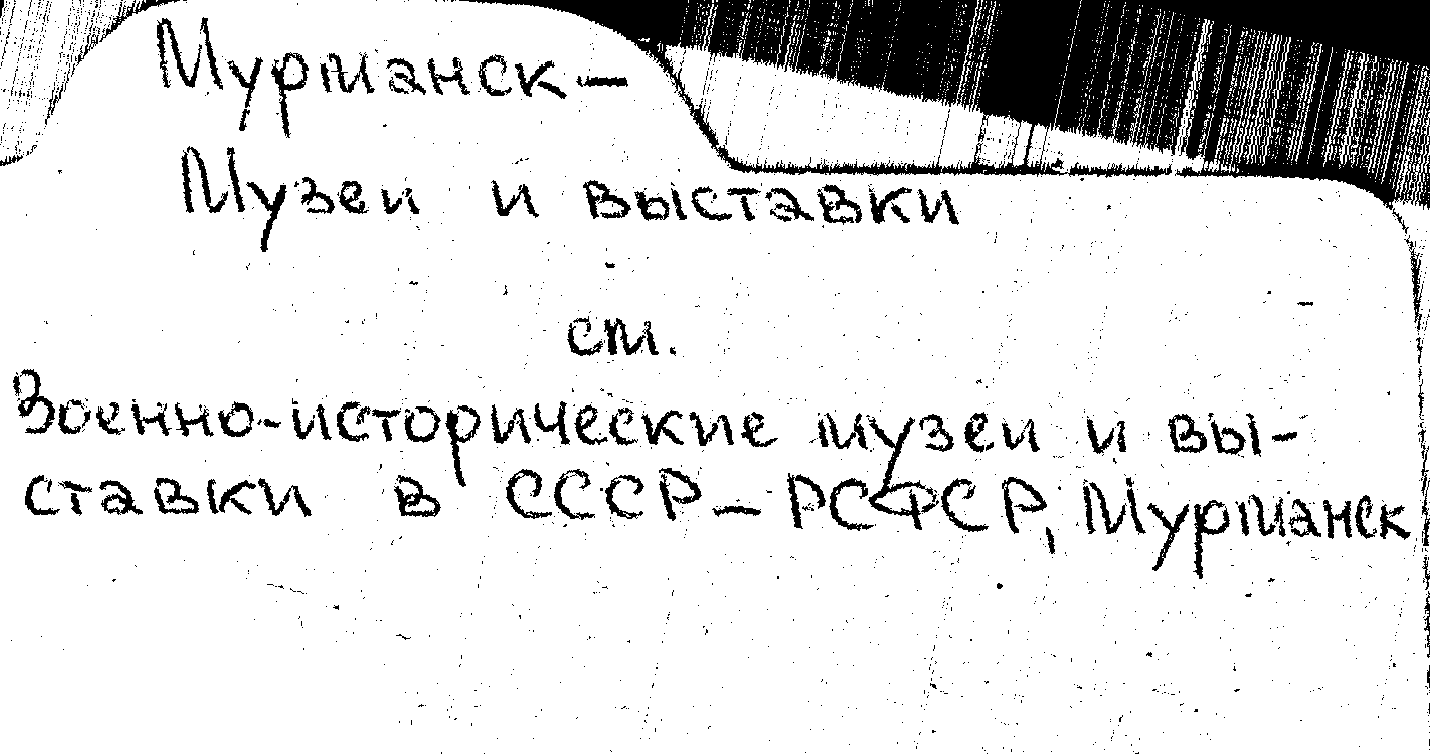 Мурманск –
Музеи и выставки
см.
Военно-исторические музеи и вы-
ставки в СССР – РСФСР, Мурманск